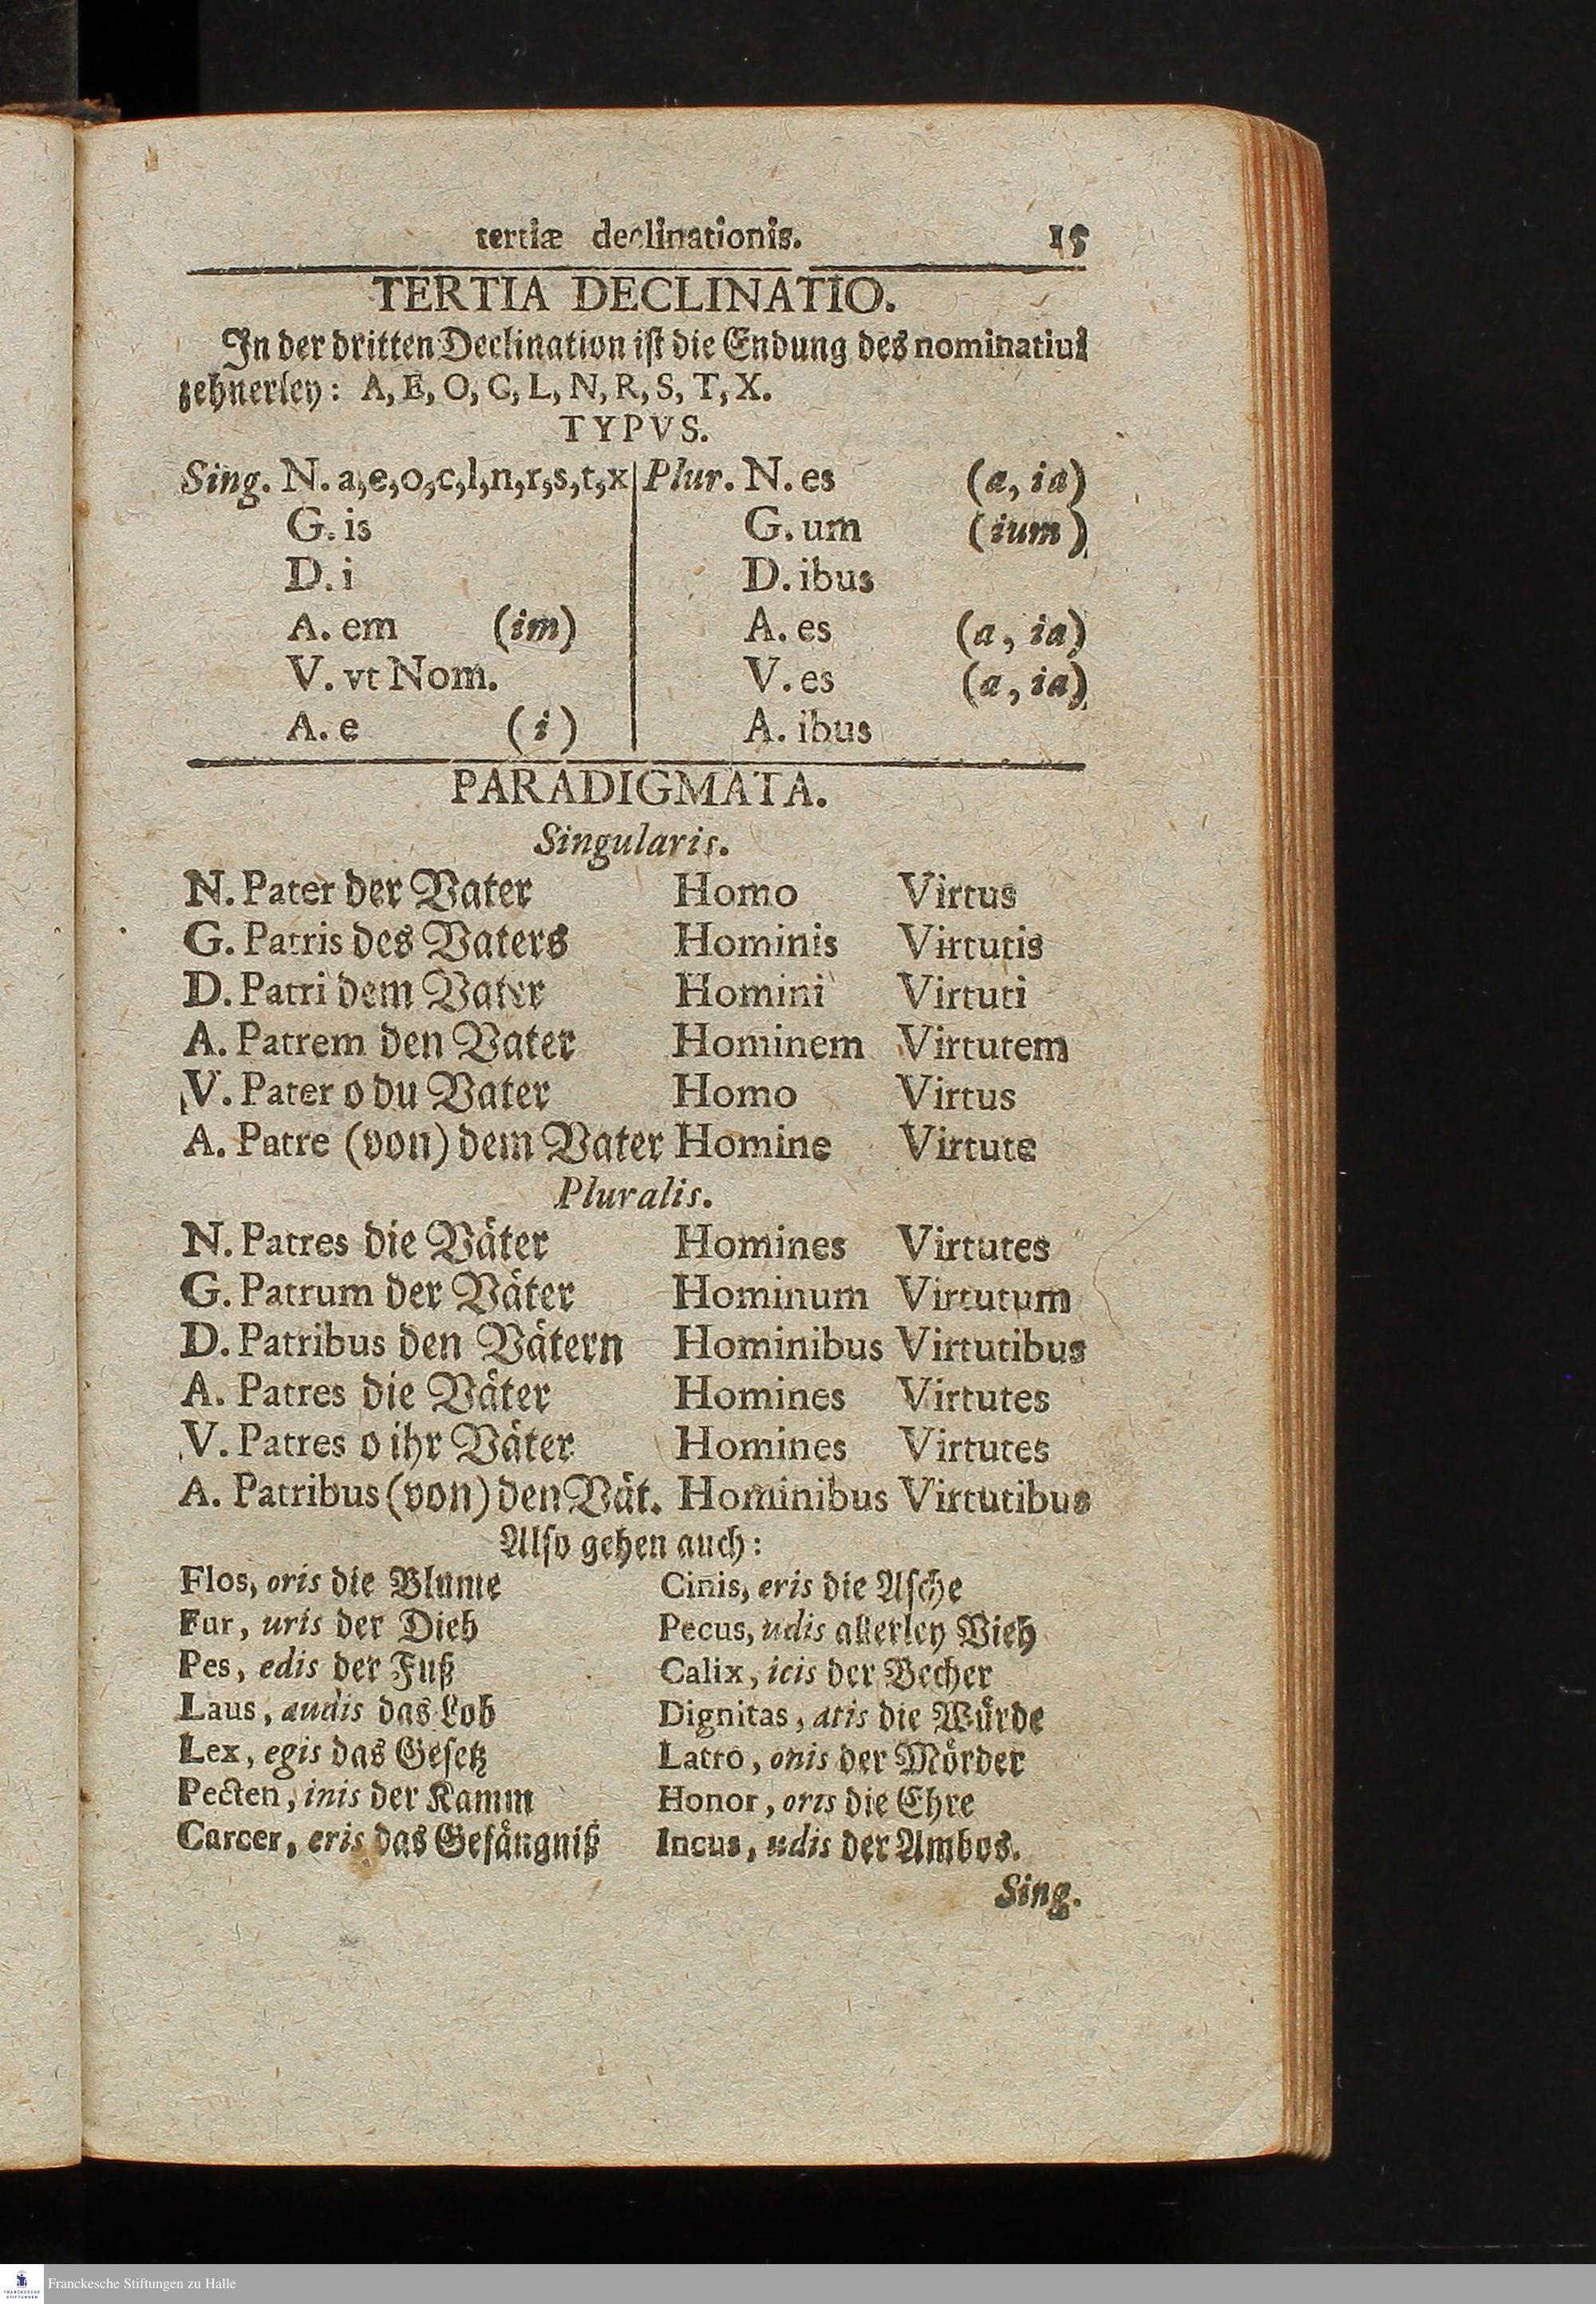 tertiæ declinationis. 15
TERTIA DECLINATIO.
In der dritten Declination ist die Endung des nominatiui
zehnerley: A, E, O, C, L, N, R, S, T, X.
TYPVS.
Sing. N. a,e,o,c,l,n,r,s,t,x | Plur. N. es (a, ia)
G. is G. um (ium)
D. i D. ibus
A. em (im) A. es (a, ia)
V. vt Nom. V. es (a, ia)
A. e (i) A. ibus
PARADIGMATA.
Singularis.
N. Pater der Vater Homo Virtus
G. Patris des Vaters Hominis Virtutis
D. Patri dem Vater Homini Virtuti
A. Patrem den Vater Hominem Virtutem
V. Pater o du Vater Homo Virtus
A. Patre (von) dem Vater Homine Virtute
Pluralis.
N. Patres die Väter Homines Virtutes
G. Patrum der Väter Hominum Virtutum
D. Patribus den Vätern Hominibus Virtutibus
A. Patres die Väter Homines Virtutes
V. Patres o ihr Väter Homines Virtutes
A. Patribus (von) den Vät. Hominibus Virtutibus
Also gehen auch:
Flos, oris die Blume Cinis, eris die Asche
Fur, uris der Dieb Pecus, udis allerley Vieh
Pes, edis der Fuß Calix, icis der Becher
Laus, audis das Lob Dignitas, atis die Würde
Lex, egis das Gesetz Latro, onis der Mörder
Pecten, inis der Kamm Honor, oris die Ehre
Carcer, eris das Gefängniß Incus, udis der Ambos.
Sing.
FRANCKESCHE
STIFTUNGEN
Franckesche Stiftungen zu Halle